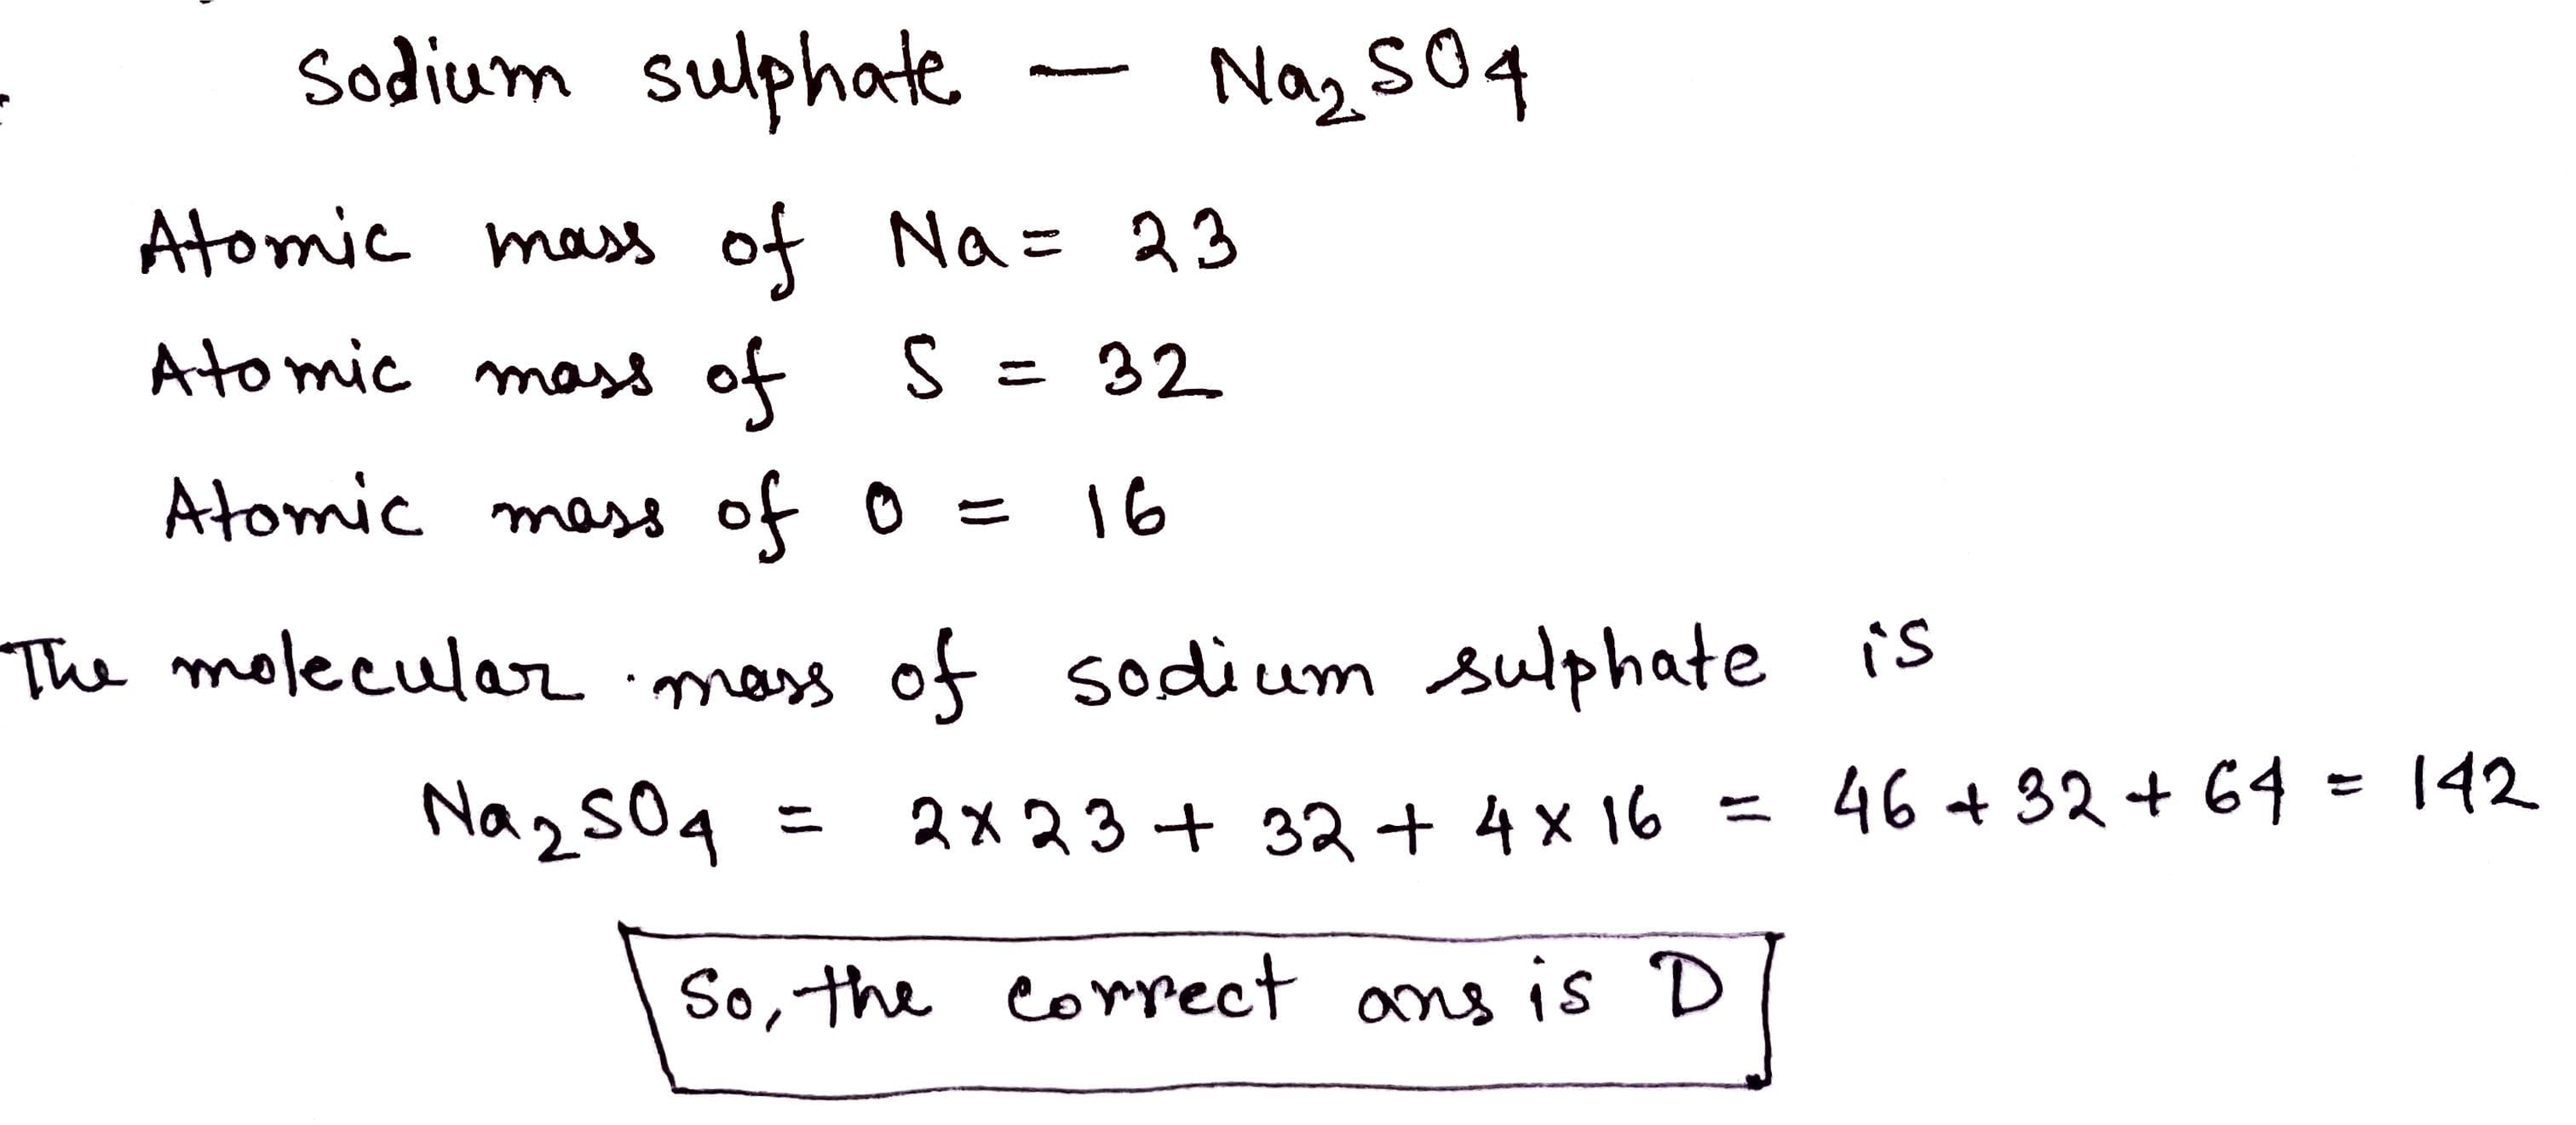 Sodium sulphate — Na₂SO₄
Atomic mass of Na = 23
Atomic mass of S = 32
Atomic mass of O = 16
The molecular mass of sodium sulphate is
Na₂SO₄ = 2×23 + 32 + 4×16 = 46 + 32 + 64 = 142
So, the correct ans is D